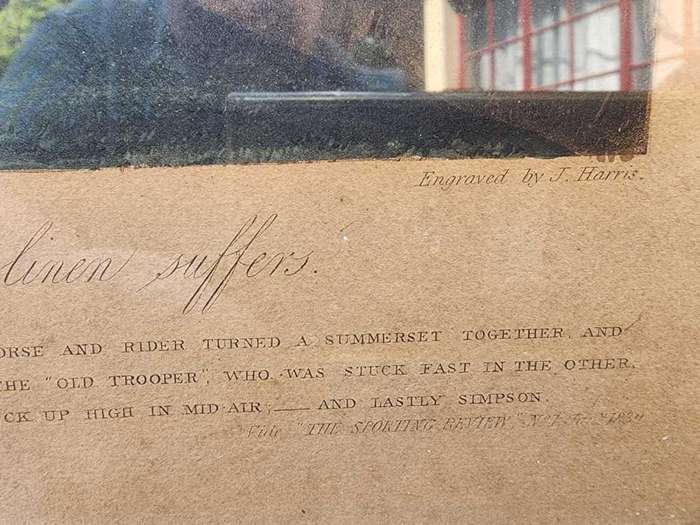 Engraved by J. Harris.
linen suffers.
ORSE AND RIDER TURNED A SUMMERSET TOGETHER, AND
THE "OLD TROOPER", WHO WAS STUCK FAST IN THE OTHER,
CK UP HIGH IN MID-AIR;—— AND LASTLY SIMPSON.
Vide "THE SPORTING REVIEW"